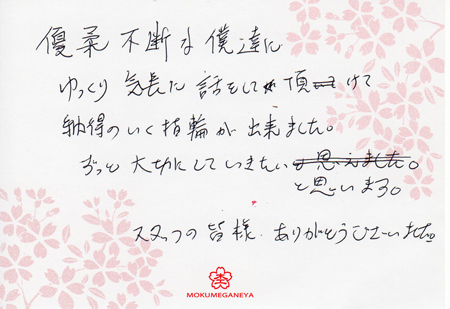 優柔不断な僕達に
ゆっくり 気長に 話をして 頂けて
納得のいく指輪が 出来ました。
ずっと 大切にしていきたい
と思います。
スタッフの皆様. ありがとうございました。
MOKUMEGANEYA